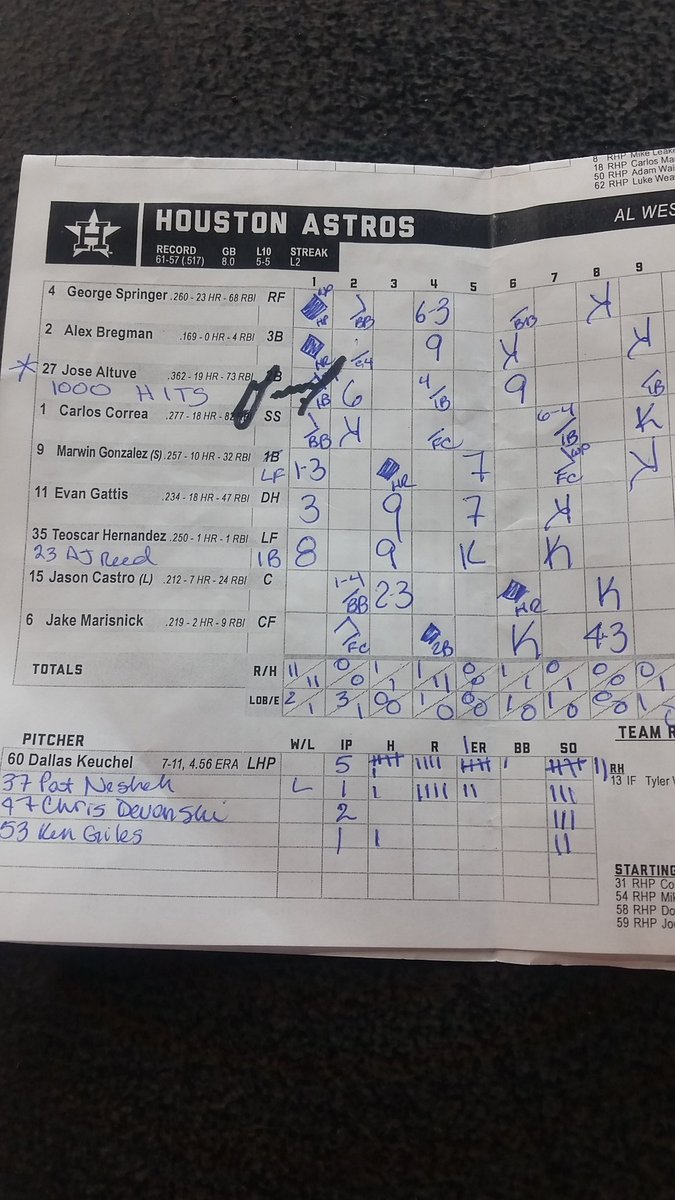 8 RHP Mike Leake
18 RHP Carlos Ma
50 RHP Adam Wai
62 RHP Luke Wea
HOUSTON ASTROS
AL WES
RECORD GB L10 STREAK
61-57 (.517) 8.0 5-5 L2
1 2 3 4 5 6 7 8 9
4 George Springer .260 - 23 HR - 68 RBI RF HR BB 6-3 BB K
2 Alex Bregman .169 - 0 HR - 4 RBI 3B HR 9 K K
27 Jose Altuve .362 - 19 HR - 73 RBI 2B 1B 6 4 1B 9 1B
1000 HITS
1 Carlos Correa .277 - 18 HR - 82 RBI SS BB K FC 6-4 1B K
9 Marwin Gonzalez (S) .257 - 10 HR - 32 RBI 1B LF 1-3 HR 7 FC K
11 Evan Gattis .234 - 18 HR - 47 RBI DH 3 9 7 K
35 Teoscar Hernandez .250 - 1 HR - 1 RBI LF 8 9 K K
23 AJ Reed 1B
15 Jason Castro (L) .212 - 7 HR - 24 RBI C 1-4 BB 2-3 HR K
6 Jake Marisnick .219 - 2 HR - 9 RBI CF FC 2B K 4-3
TOTALS R/H
LOB/E
PITCHER W/L IP H R ER BB SO
TEAM R
60 Dallas Keuchel 7-11, 4.56 ERA LHP 5
RH
37 Pat Neshek L 1
13 IF Tyler
47 Chris Devenski 2
53 Ken Giles 1
STARTING
31 RHP Co
54 RHP Mik
58 RHP Do
59 RHP Joe